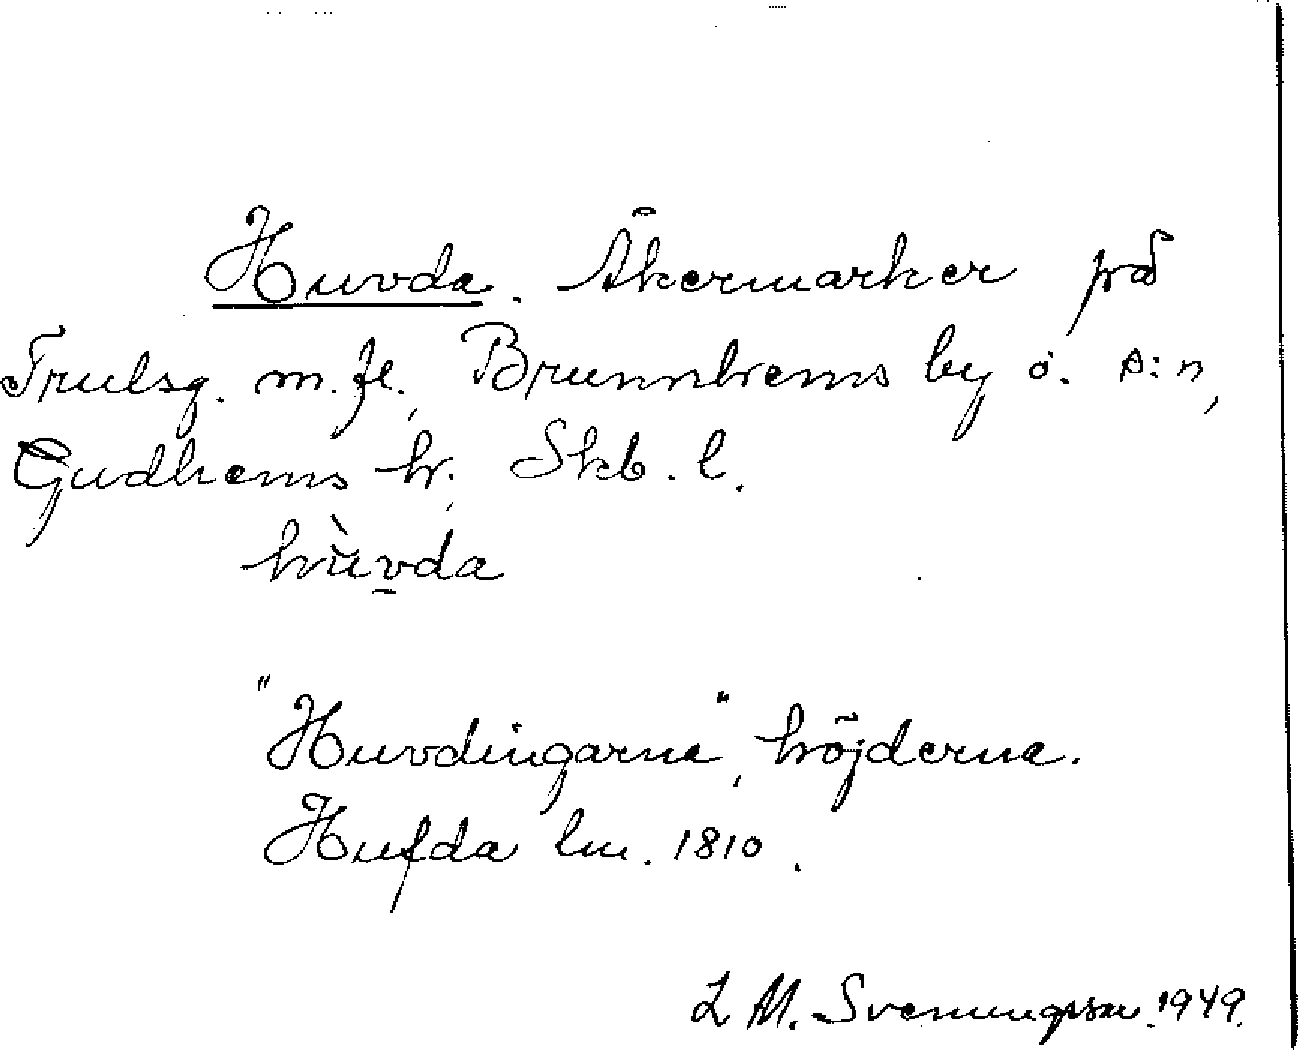 Huvda. Åkermarker på
Trulsg. m. fl., Brunnhems by o. s:n,
Gudhems hr. Skb. l.
hùvda
"Huvdingarna", höjderna.
Hufda lm. 1810.
L M. Svenungsson 1949.